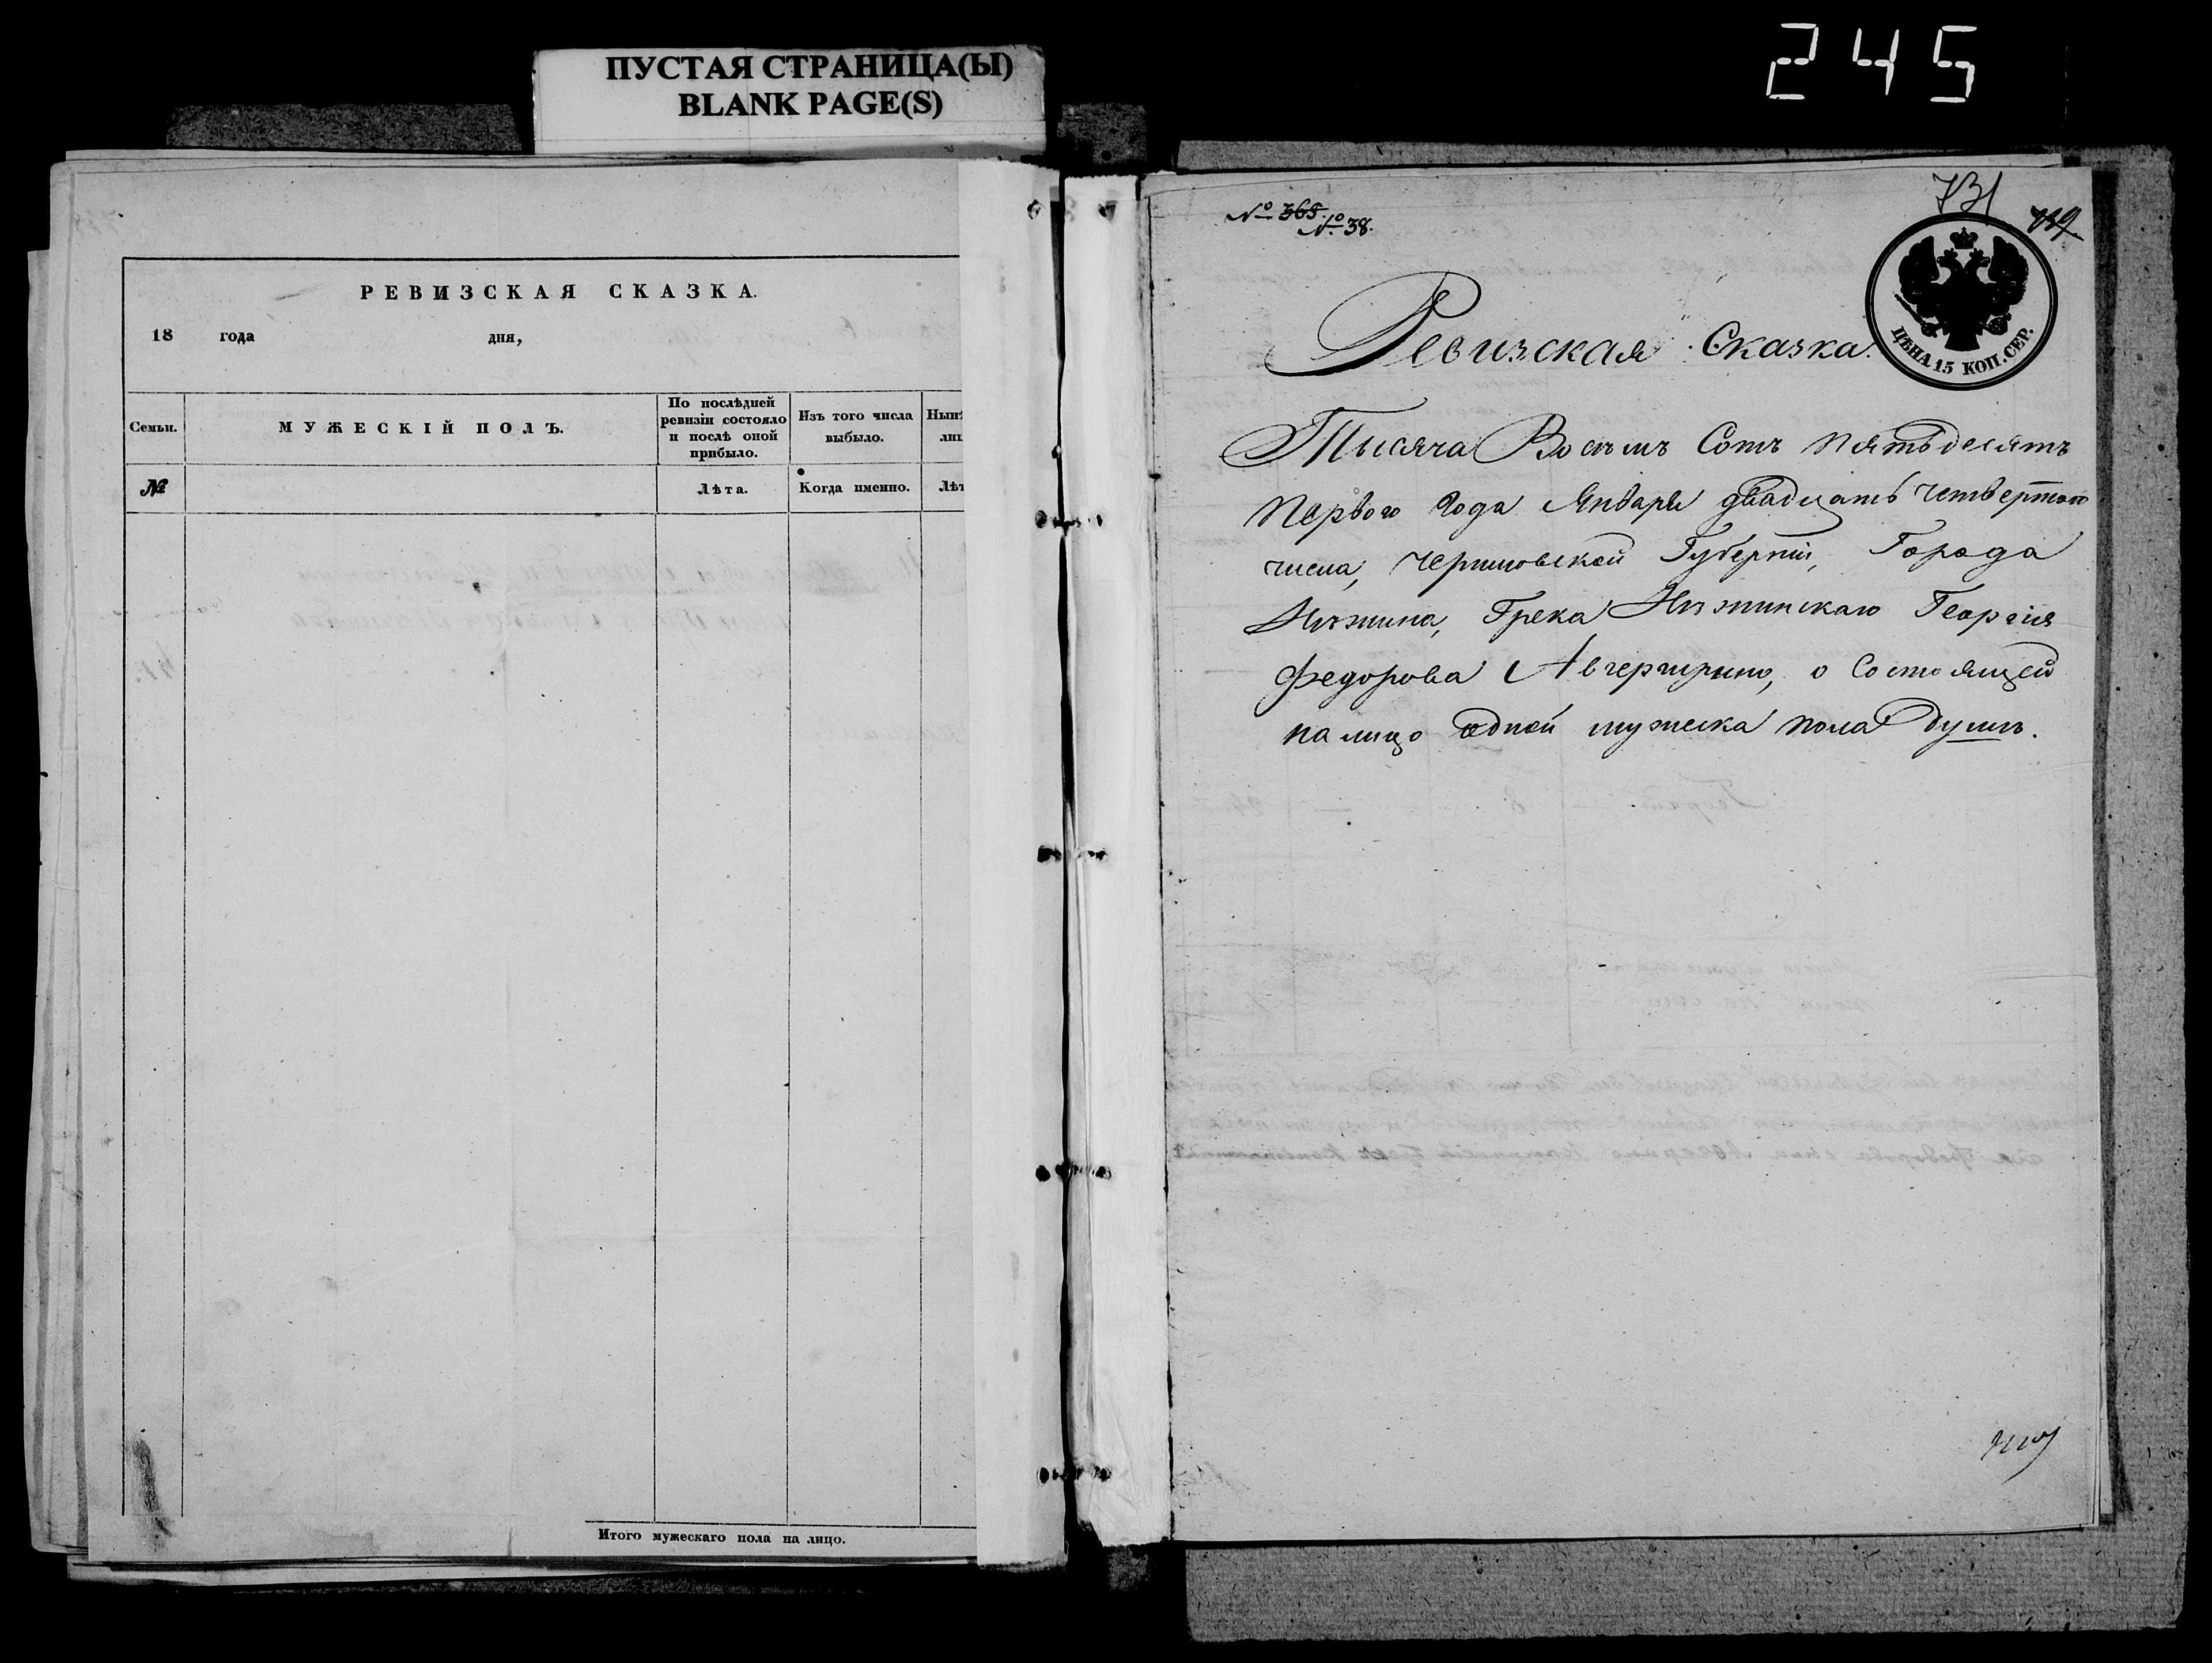 ПУСТАЯ СТРАНИЦА(Ы)
BLANK PAGE(S)
245
РЕВИЗСКАЯ СКАЗКА.
18 года дня,
Семьи.
МУЖЕСКІЙ ПОЛЪ.
По послѣдней
ревизіи состояло
и послѣ оной
прибыло.
Изъ того числа
выбыло.
Нын
ли
№
Лѣта.
Когда именно.
Лѣт
Итого мужескаго пола на лицо.
731
№ 365.
№ 38.
ЦѢНА 15 КОП. СЕР.
Ревизская Сказка.
Тысяча Восемъ Сотъ пятьдесятъ
перваго года Января двадцать четвертаго
числа, Черниговской Губерніи, Города
Нѣжина, Грека Нѣжинскаго Георгія
Федорова о Состоящей
на лицо одной мужеска пола душѣ.